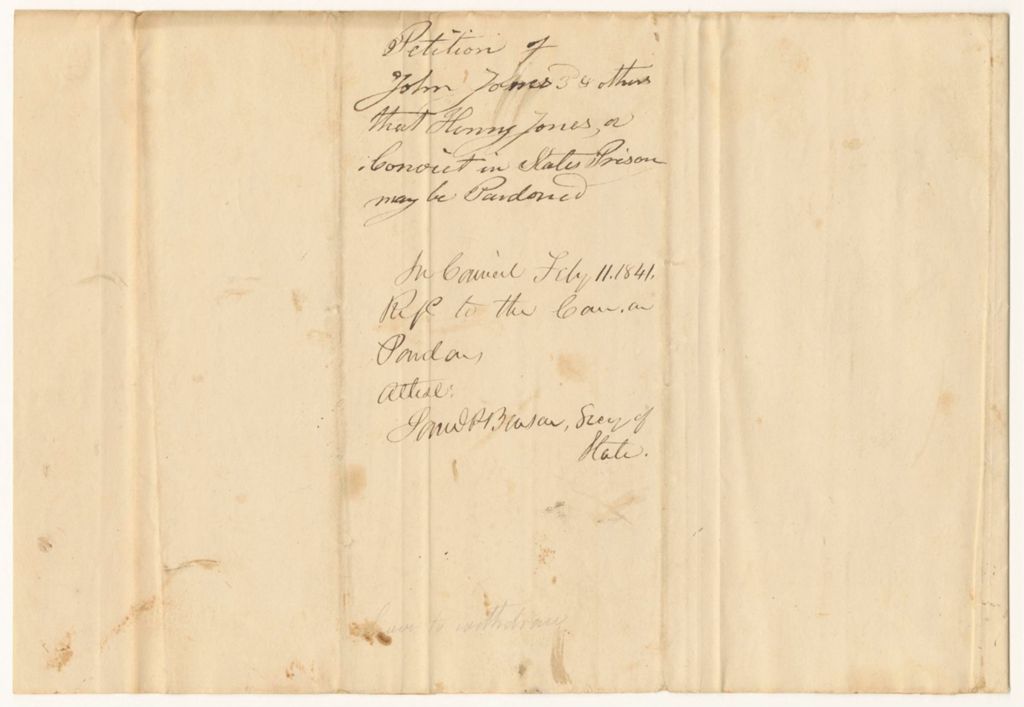 Petition of
John Jones 3d & others
that Henry Jones, a
Convict in States Prison
may be Pardoned
In Council Feby 11. 1841.
Refd to the Com. on
Pardons
Attest:
Saml P Benson, Secy of
State.
Leave to withdraw